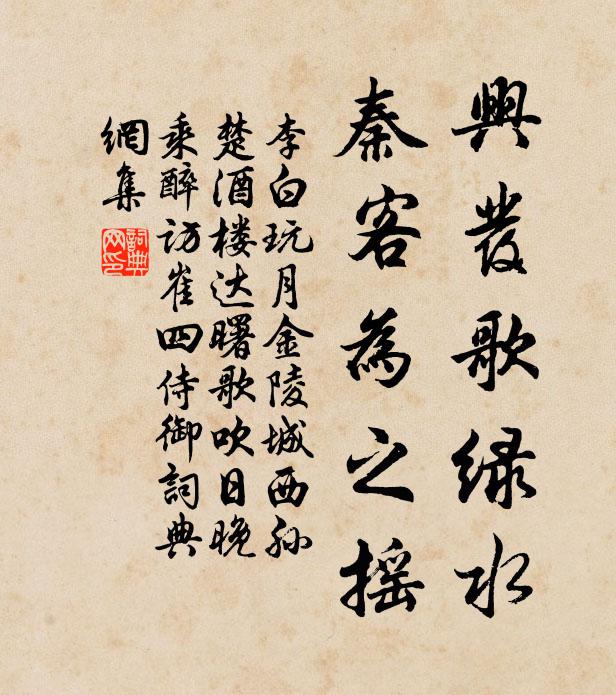 興發歌绿水
秦客為之摇
李白玩月金陵城西孙
楚酒楼达曙歌吹日晚
乘醉访崔四侍御詞典
網集
詞典
网印